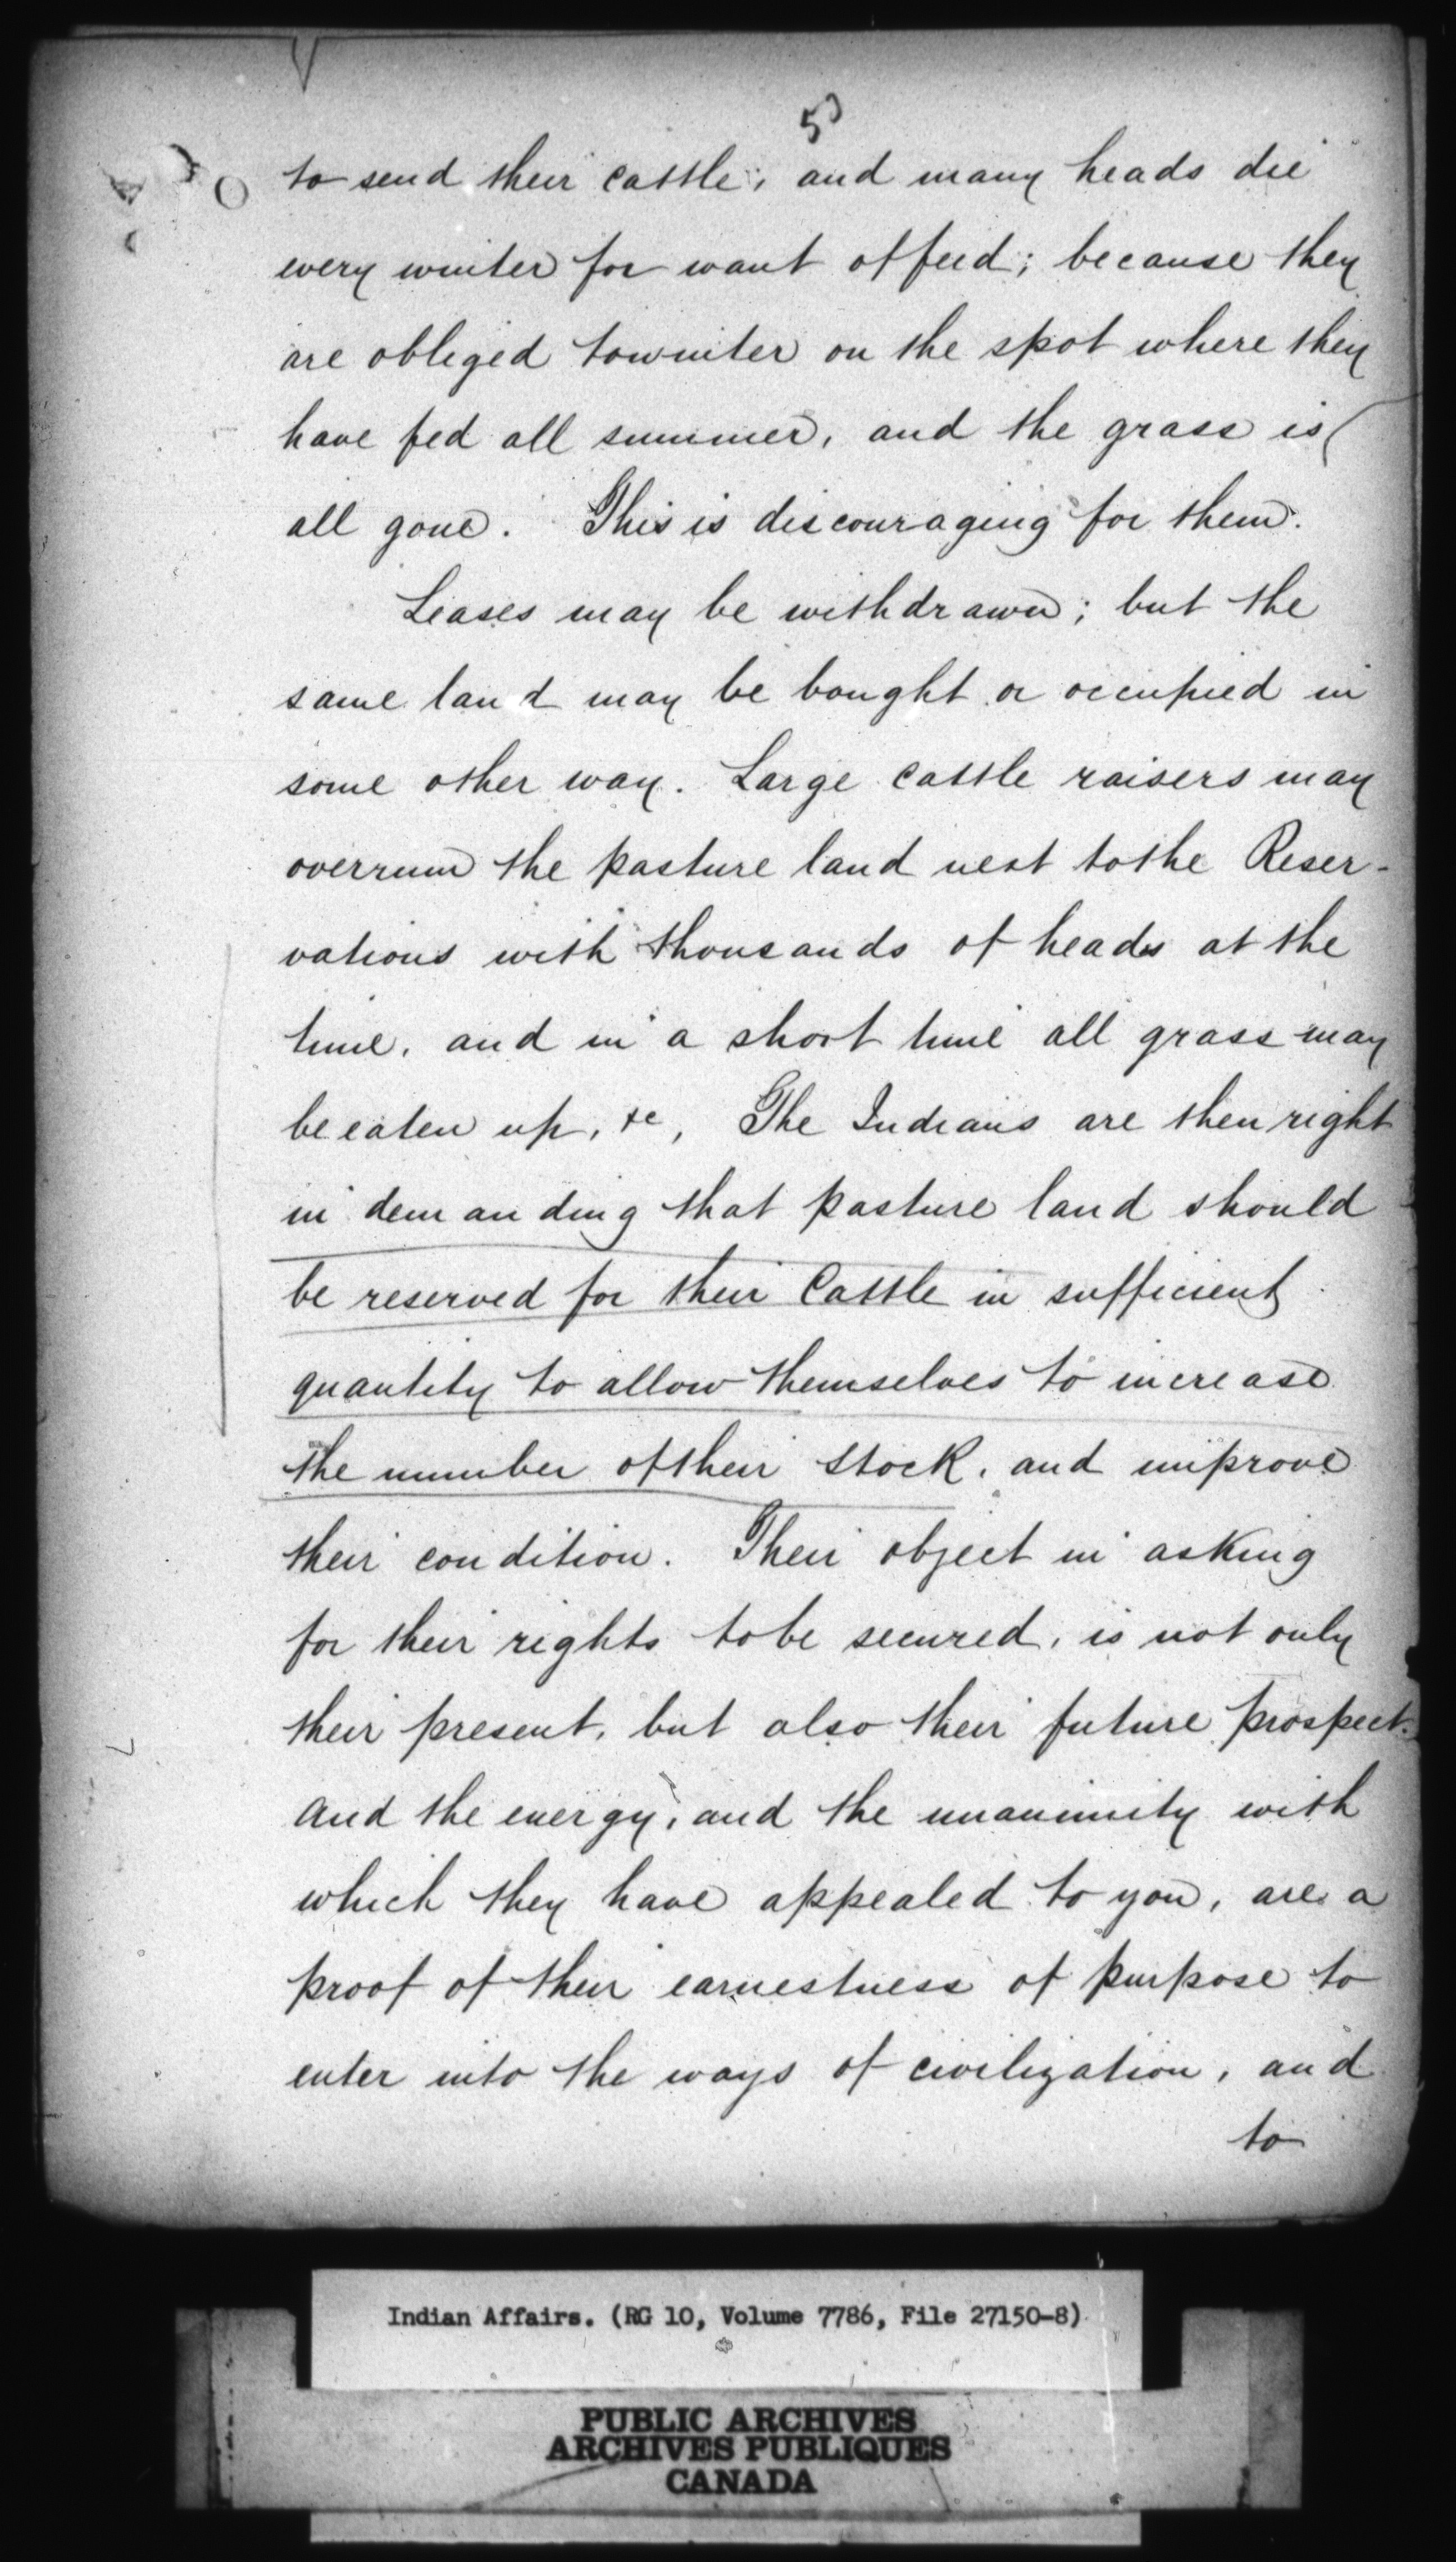 5
to send their cattle, and many heads die
every winter for want of feed; because they
are obliged to winter on the spot where they
have fed all summer, and the grass is
all gone. This is discouraging for them.
Leases may be withdrawn; but the
same land may be bought or occupied in
some other way. Large cattle raisers may
overrun the pasture land next to the Reser-
vations with thousands of heads at the
time, and in a short time all grass may
be eaten up, &c, The Indians are then right
in demanding that pasture land should
be reserved for their Cattle in sufficient
quantity to allow themselves to increase
the number of their stock, and improve
their condition. Their object in asking
for their rights to be secured, is not only
their present, but also their future prospect.
And the energy, and the unanimity with
which they have appealed to you, are a
proof of their earnestness of purpose to
enter into the ways of civilization, and
to
Indian Affairs. (RG 10, Volume 7786, File 27150-8)
PUBLIC ARCHIVES
ARCHIVES PUBLIQUES
CANADA